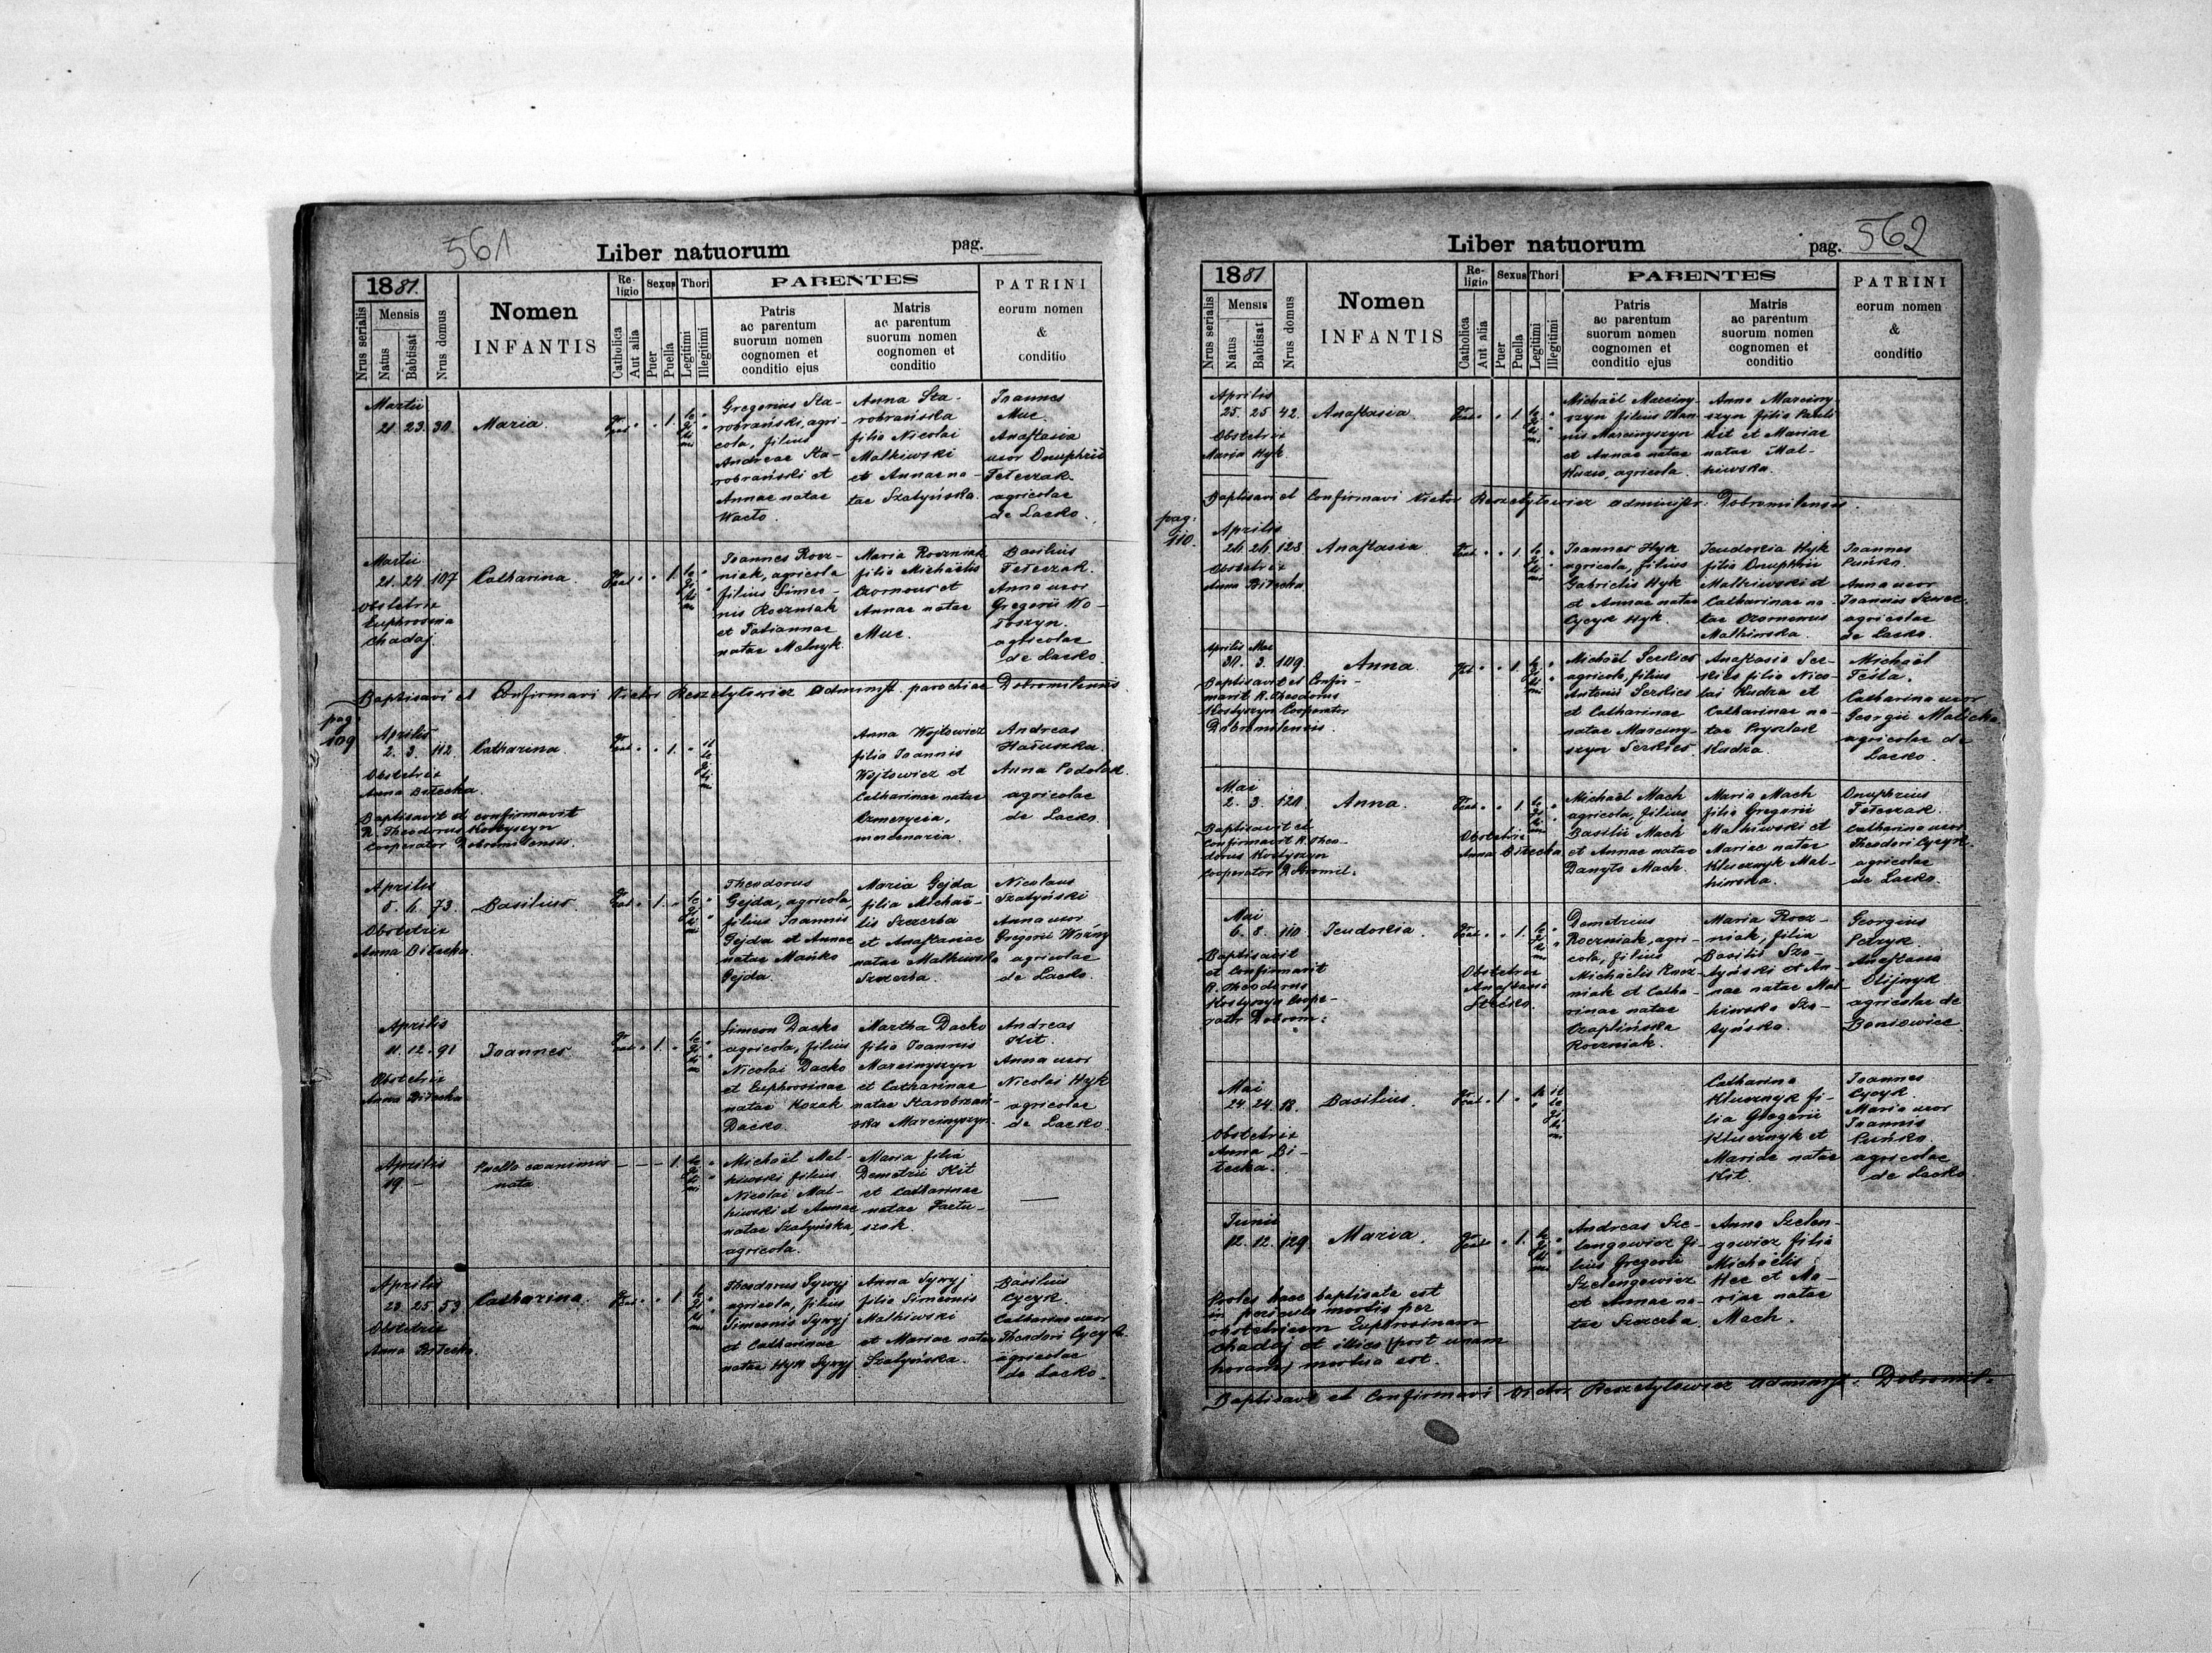 561
Liber natuorum
pag.
1881.
Nrus serialis
Mensis
Natus
Babtisat
Nrus domus
Nomen
INFANTIS
Religio
Catholica
Aut alia
Sexus
Puer
Puella
Thori
Legitimi
Illegitimi
PARENTES
Patris
ac parentum
suorum nomen
cognomen et
conditio ejus
Matris
ac parentum
suorum nomen
cognomen et
conditio
PATRINI
eorum nomen
&
conditio
Martii
21. 23. 30.
Maria.
Gregorius Sta-
robrański, agri-
cola, filius
Andreae Sta-
robrański et
Annae natae
Anna Sta-
robrańska
filia Nicolai
Malhiwski
et Annae na-
tae Szatyńska.
Joannes
Muc.
Anastasia
uxor Onuphrii
Tełeczak
agricolae
de Lacko.
Martii
21. 24. 107
Obstetrix
Euphrosina
Chadaj.
Catharina.
Joannes Rocz-
niak, agricola
filius Simeo-
nis Roczniak
et Tatiannae
natae Melnyk.
Maria Roczniak
filia Michaëlis
Czornous et
Annae natae
Muc.
Basilius
Tełeczak.
Anna uxor
Gregorii Wo-
łoszyn.
agricolae
de Lacko.
Baptisavi et Confirmavi Victor Reszetyłowicz administ. parochiae Dobromilensis
pag:
109
Aprilis
2. 3. 112
Obstetrix
Anna Biłecka.
Baptisavit et confirmavit
R. Theodorus Kostyszyn
Cooperator Dobromilensis.
Catharina.
Anna Wojtowicz
filia Joannis
Wojtowicz et
Catharinae natae
Andreas
Hałuszka.
Anna Podolak.
agricolae
de Lacko
Aprilis
5. 6. 73.
Obstetrix
Anna Biłecka.
Basilius.
Theodorus
Gejda, agricola,
filius Joannis
Gejda et Annae
natae Mańko
Gejda.
Maria Gejda
filia Michaë-
lis Szczerba
et Anastasiae
natae Malhiwska
Szczerba.
Nicolaus
Szatyński
Anna uxor
Gregorii Woźny
agricolae
de Lacko.
Aprilis
11. 12. 91
Obstetrix
Anna Biłecka
Joannes
Simeon Dacko
agricola, filius
Nicolai Dacko
et Euphrosinae
natae Kozak
Dacko.
Martha Dacko
filia Joannis
Marcinyszyn
et Catharinae
natae Starobrzań-
ska Marcinyszyn.
Andreas
Kit.
Anna uxor
Nicolai Hyk
agricolae
de Lacko.
Aprilis
19 -
Puella exanimis
nata
Michaël Mal-
hiwski filius
Nicolai Mal-
hiwski et Annae
natae Szatyńska,
agricola.
Maria filia
Demetrii Kit
et Catharinae
natae Jartu-
szak.
Aprilis
23. 25. 53
Obstetrix
Anna Biłecka.
Catharina.
Theodorus Sywyj
agricola, filius
Simeonis Sywyj
et Catharinae
natae Hyk Sywyj.
Anna Sywyj
filia Simeonis
Malhiwski
et Mariae natae
Szatyńska.
Basilius
Cycyk.
Catharina uxor
Theodori Cycyk.
agricolae
de Lacko.
Liber natuorum
pag. 562
1881
Nrus serialis
Mensis
Natus
Babtisat
Nrus domus
Nomen
INFANTIS
Religio
Catholica
Aut alia
Sexus
Puer
Puella
Thori
Legitimi
Illegitimi
PARENTES
Patris
ac parentum
suorum nomen
cognomen et
conditio ejus
Matris
ac parentum
suorum nomen
cognomen et
conditio
PATRINI
eorum nomen
&
conditio
Aprilis
25. 25 42.
Obstetrix
Maria Hyk
Anastasia.
Michaël Marciny-
szyn filius Joan-
nis Marcinyszyn
et Annae natae
agricola.
Anna Marciny-
szyn filia Pauli
Kit et Mariae
natae Mal-
hiwska.
Baptisavi et Confirmavi Victor Reszetyłowicz administ: Dobromilensis.
pag:
110.
Aprilis
26. 26. 123.
Obstetrix
Anna Biłecka
Anastasia
Joannes Hyk
agricola, filius
Gabrielis Hyk
et Annae natae
Cycyk Hyk.
Teudozia Hyk
filia Onuphrii
Malhiwski et
Catharinae na-
tae Czornous
Malhiwska.
Joannes
Puńko.
Anna uxor
Joannis
agricolae
de Lacko.
Aprilis Mai
30. 3. 109.
Baptisavit et Confir-
mavit R. Theodorus
Kostyszyn Cooperator
Dobromilensis.
Anna.
Michaël
agricola, filius
Antonii
et Catharinae
natae Marciny-
szyn
Anastasia
filia Nico-
lai Kudza et
Catharinae na-
tae Pryzlak
Kudza.
Michaël
Catharina uxor
Georgii
agricolae de
Lacko.
Mai
2. 3. 121.
Baptisavit et
Confirmavit R. Theo-
dorus Kostyszyn
Cooperator Dobromil:
Anna.
Obstetrix
Anna Biłecka
Michaël Mach
agricola, filius
Basilii Mach
et Annae natae
Danyło Mach.
Maria Mach
filia Gregorii
Malhiwski et
Mariae natae
Klucznyk Mal-
hiwska.
Onuphrius
Tełeczak.
Catharina uxor
Theodori Cycyk.
agricolae
de Lacko.
Mai
6. 8. 110.
Baptisavit
et Confirmavit
R. Theodorus
Kostyszyn Coope-
rator Dobrom:
Teudozia.
Obstetrix
Anastasia
Demetrius
Roczniak, agri-
cola, filius
Michaëlis Rocz-
niak et Catha-
rinae natae
Czaplińska
Roczniak.
Maria Rocz-
niak, filia
Basilii Sza-
tyński et An-
nae natae Mal-
hiwska Sza-
tyńska.
Georgius
Petryk.
Anastasia
Olijnyk
agricolae de
Boniowice.
Mai
24. 24. 18.
Obstetrix
Anna Bi-
łecka.
Basilius.
Catharina
Klucznyk fi-
lia Gregorii
Klucznyk et
Mariae natae
Kit.
Joannes
Cycyk.
Maria uxor
Joannis
Puńko.
agricolae
de Lacko
Junii
12. 12. 129
Maria.
Proles haec baptisata est
in periculo mortis per
obstetricem Euphrosinam
Chadaj et illico (post unam
horam) mortua est.
Andreas Sze-
lengowicz fi-
lius Gregorii
Szelengowicz
et Annae na-
tae Szczerba.
Anna Szelen-
gowicz filia
Michaëlis
Hec et Ma-
riae natae
Mach.
Baptisavi et Confirmavi Victor Reszetyłowicz administ. Dobromil.